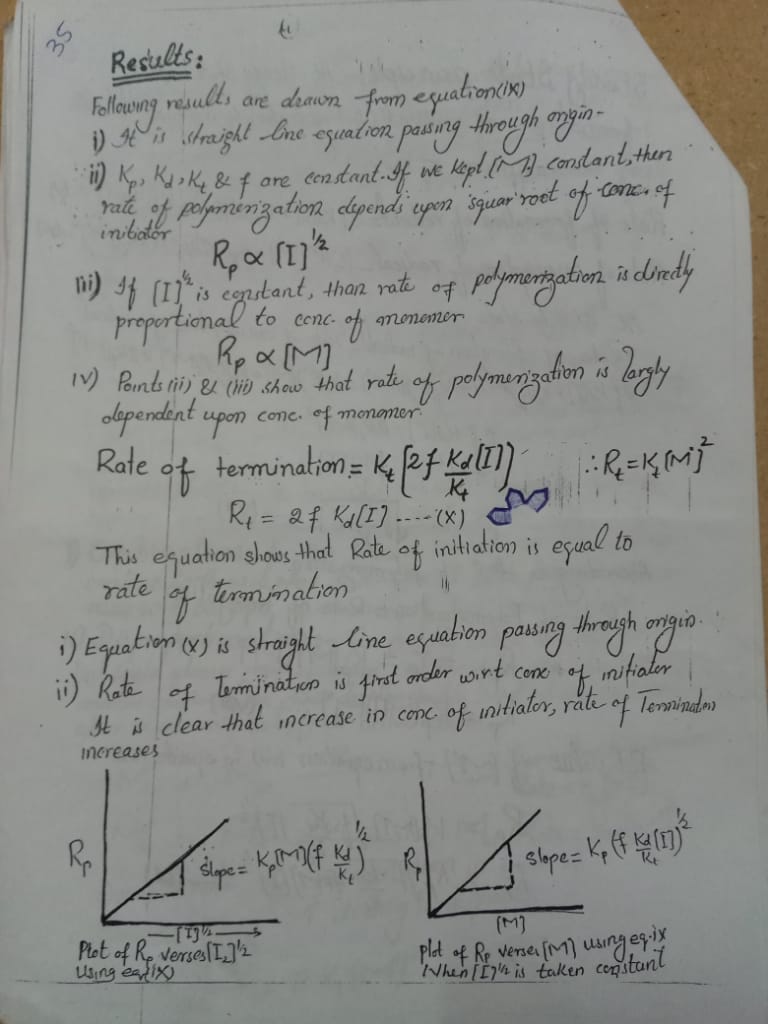 35
Results:
Following results are drawn from equation(ix)
i) It is straight line equation passing through origin-
ii) Kp, Kd, Kt & f are constant. If we kept [M] constant, then
rate of polymerization depends upon squar root of conc. of
initiator
Rp ∝ [I]^1/2
iii) If [I]^1/2 is constant, than rate of polymerization is directly
proportional to conc. of monomer
Rp ∝ [M]
iv) Points (ii) & (iii) show that rate of polymerization is largly
dependent upon conc. of monomer.
Rate of termination = Kt [2f Kd[I]/Kt] ∴ Rt = Kt[M·]^2
Rt = 2f Kd[I] ----- (X)
This equation shows that Rate of initiation is equal to
rate of termination
i) Equation (x) is straight line equation passing through origin.
ii) Rate of Termination is first order w.r.t conc of initiator
It is clear that increase in conc. of initiator, rate of Termination
increases
Rp
slope = Kp[M](f Kd/Kt)^1/2
[I]^1/2
Plot of Rp verses [I2]^1/2
Using eq(ix)
Rp
slope = Kp (f Kd/Kt [I])^1/2
[M]
plot of Rp verses [M] using eq.ix
When [I]^1/2 is taken constant